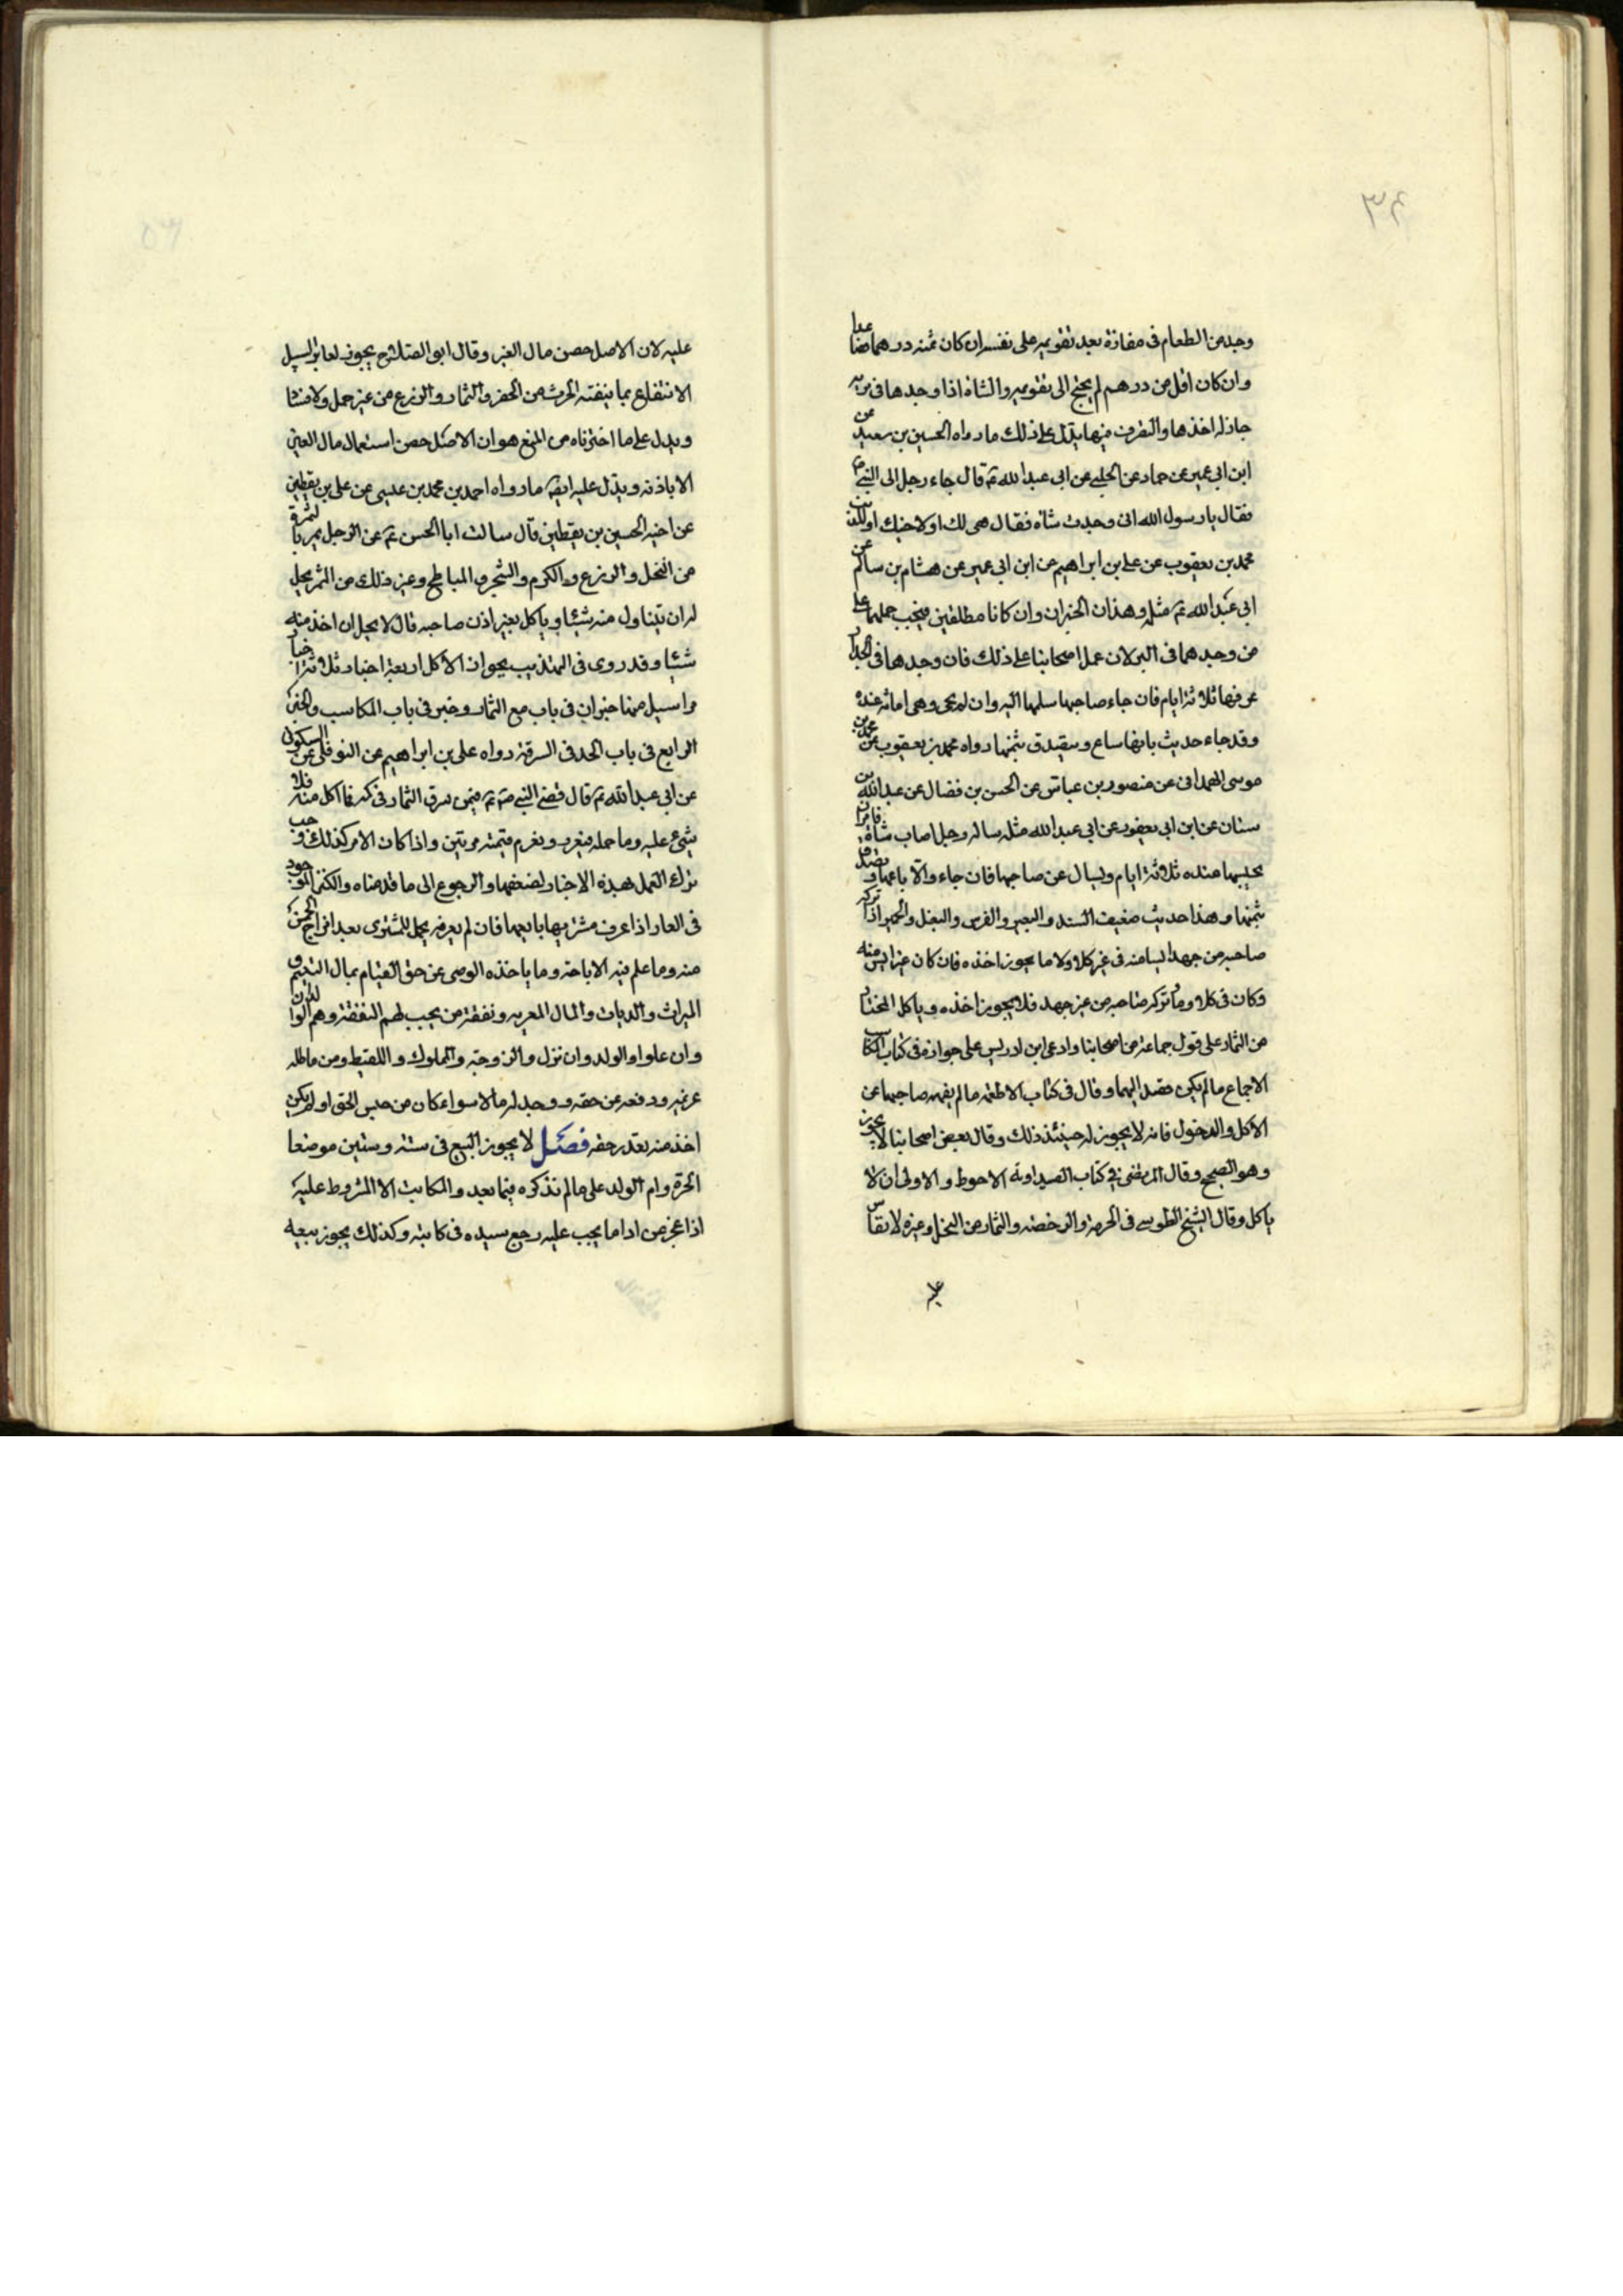 ٣٤
وجد من الطعام فى مفازة بعد تقويمه على نفسه ان كان ثمنه درهما فصاعدا
وان كان اقل من درهم لم يحتج الى تقويمه والشاة اذا وجدها فى بريه
جاز له اخذها والتصرف فيها يدل على ذلك ما رواه الحسين بن سعيد عن
ابن ابى عمير عن حماد عن الحلبى عن ابى عبد الله ع قال جاء رجل الى النبى ص
فقال يا رسول الله انى وجدت شاة فقال هى لك او لاخيك او للذئب
محمد بن يعقوب عن على بن ابراهيم عن ابن ابى عمير عن هشام بن سالم عن
ابى عبد الله ع مثله وهذان الخبران وان كانا مطلقين فيجب حملهما على
من وجدهما فى البر لان عمل اصحابنا على ذلك فان وجدها فى الجدار
عرفها ثلاثة ايام فان جاء صاحبها سلمها اليه وان لم يجئ وهى امانة عنده
وقد جاء حديث بانها تباع ويتصدق بثمنها رواه محمد بن يعقوب عن محمد بن
موسى الهمدانى عن منصور بن عباس عن الحسن بن فضال عن عبد الله بن
سنان عن ابن ابى يعفور عن ابى عبد الله مثله ساله رجل اصاب شاة فامره ان
يحبسها عنده ثلاثة ايام ويسال عن صاحبها فان جاء والا باعها وتصدق
بثمنها وهذا حديث ضعيف السند والبعير والفرس والبغل والحمير اذا تركه
صاحبه من جهد ايسا منه فى غير كلاء ولا ماء يجوز اخذه فان كان غير ايس منه
وكان فى كلاء وماء وتركه صاحبه من غير جهد فلا يجوز اخذه وياكل المختار
من الثمار على قول جماعة من اصحابنا وادعى ابن ادريس على جوازه فى كتاب المكاسب
الاجماع ما لم يكن قصد اليها وقال فى كتاب الاطعمه ما لم ينهه صاحبها عن
الاكل والدخول فانه لا يجوز له حينئذ ذلك وقال بعض اصحابنا لا يجوز
وهو الصحيح وقال المرتضى فى كتاب الصيداويه الاحوط والاولى ان لا
ياكل وقال الشيخ الطوسى فى الحرمة والرخصة والثمار من النخل وغيره لا يقاس
عليه
عليه لان الاصل حصن مال الغير وقال ابو الصلاح يجوز لعابر السبيل
الانتفاع بما ينبته الحرث من الخضر والثمار والزرع من غير حمل ولا فساد
ويدل على ما اخترناه من المنع هو ان الاصل حصن استعمال مال الغير
الا باذنه ويدل عليه ايضا ما رواه احمد بن محمد بن عيسى عن على بن يقطين
عن اخيه الحسين بن يقطين قال سالت ابا الحسن ع عن الرجل يمر بالثمرة
من النخل والزرع والكرم والشجر والمباطخ وغير ذلك من الثمر يحل
له ان يتناول منه شيئا وياكل بغير اذن صاحبه قال لا يحل ان اخذ منه
شيئا وقد روى فى التهذيب بجواز الاكل اربعة اخبار ثلاثة اخبار
مراسيل منها خبران فى باب بيع الثمار وخبر فى باب المكاسب والخبر
الرابع فى باب الحد فى السرقة رواه على بن ابراهيم عن النوفلى عن السكونى
عن ابى عبد الله ع قال قضى النبى ص ع فيمن سرق الثمار فى كمه فما اكل منه فلا
شىء عليه وما حمله فيعزر ويغرم قيمته مرتين واذا كان الامر كذلك وجب
ترك العمل بهذه الاخبار لضعفها والرجوع الى ما قدمناه والكنز الموجود
فى الدار اذا عرف مشتريها بايعها فان لم يعرفه يحل للمشترى بعد اخراج الخمس
منه وما علم فيه الاباحة وما ياخذه الوصى عن حق القيام بمال اليتيم و
الميراث والديات والمال المعربه ونفقة من يجب لهم النفقة وهم الوالدان
وان علوا والولد وان نزل والزوجة والمملوك واللقيط ومن ماطله
غريمه ودفعه عن حقه ووجد له مالا سواء كان من جنس الحق او لم يكن
اخذ منه بقدر حقه فصل لا يجوز البيع فى ستة وستين موضعا
الحرة وام الولد على ما لم نذكره فيما بعد والمكاتب الا المشروط عليه
اذا عجز من اداء ما يجب عليه رجع سيده فى كتابته وكذلك يجوز بيعه